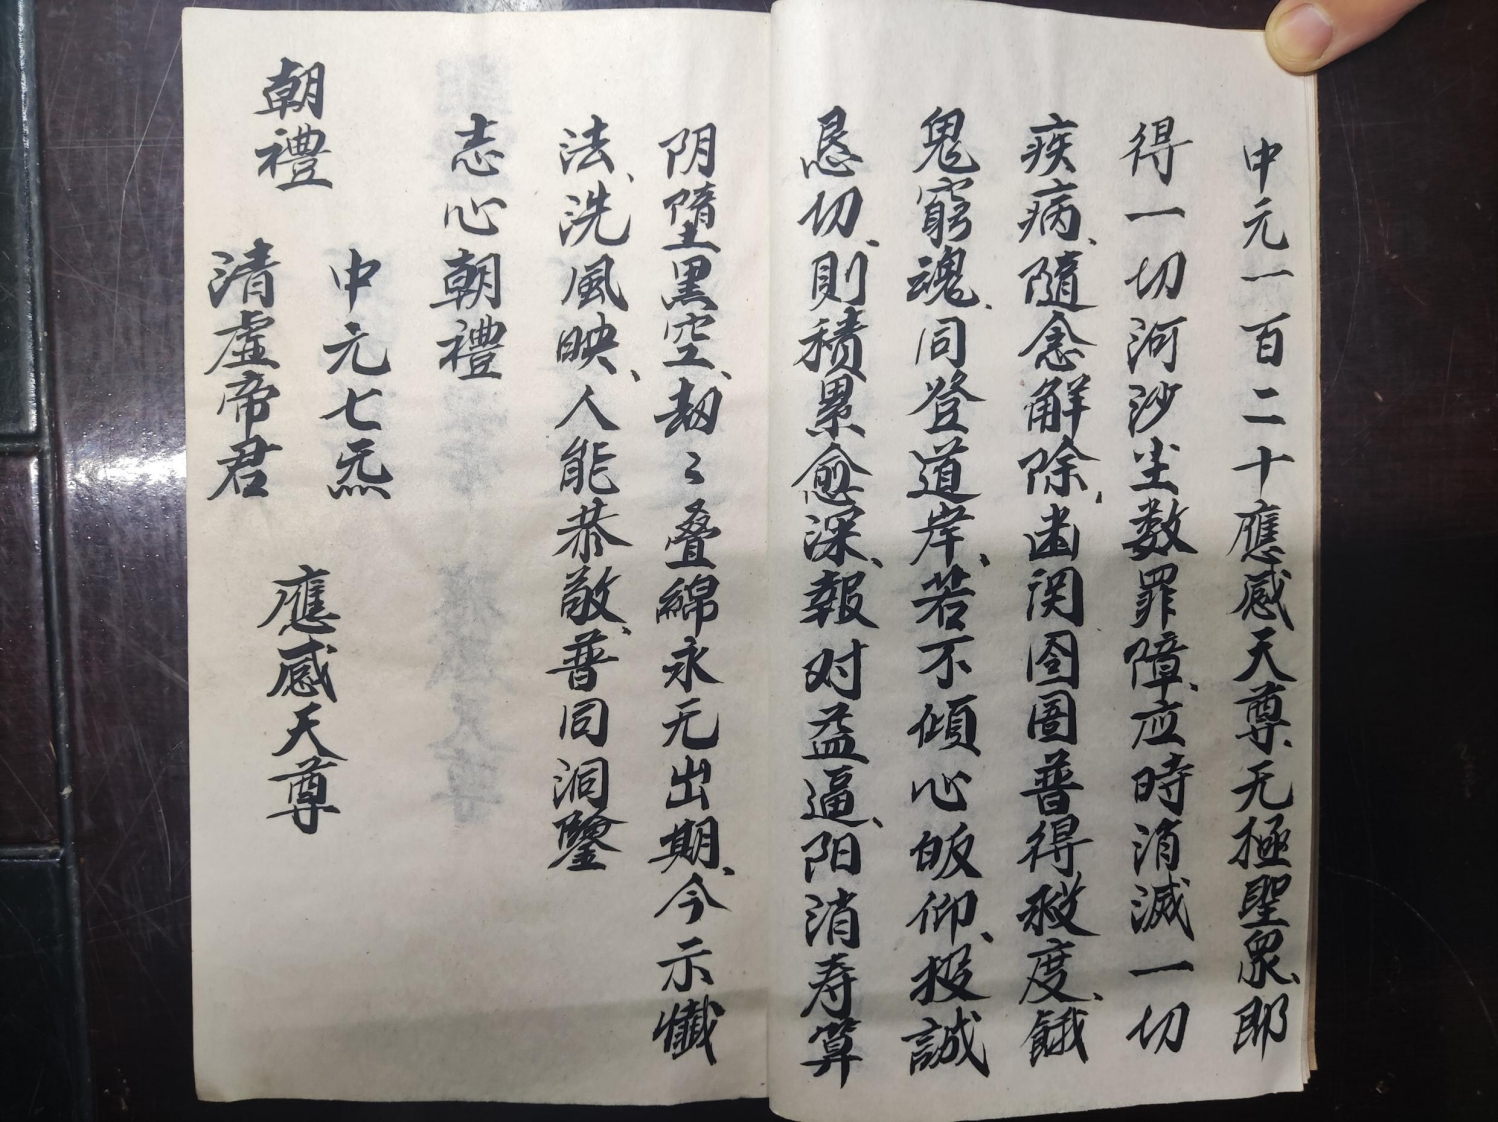 中元一百二十應感天尊、无極聖衆、即
得一切河沙尘数罪障、应時消滅一切
疾病、隨念解除、幽関囹圄普得救度、餓
鬼窮魂、同登道岸、若不傾心皈仰、投誠
恳切、則積累愈深、報对益逼、阳消寿算
阴墮黑空、劫〻叠綿永无出期、今示懺
法、洗風映、人能恭敬、普同洞鑒
志心朝禮
朝禮
中元七炁
清虚帝君
應感天尊